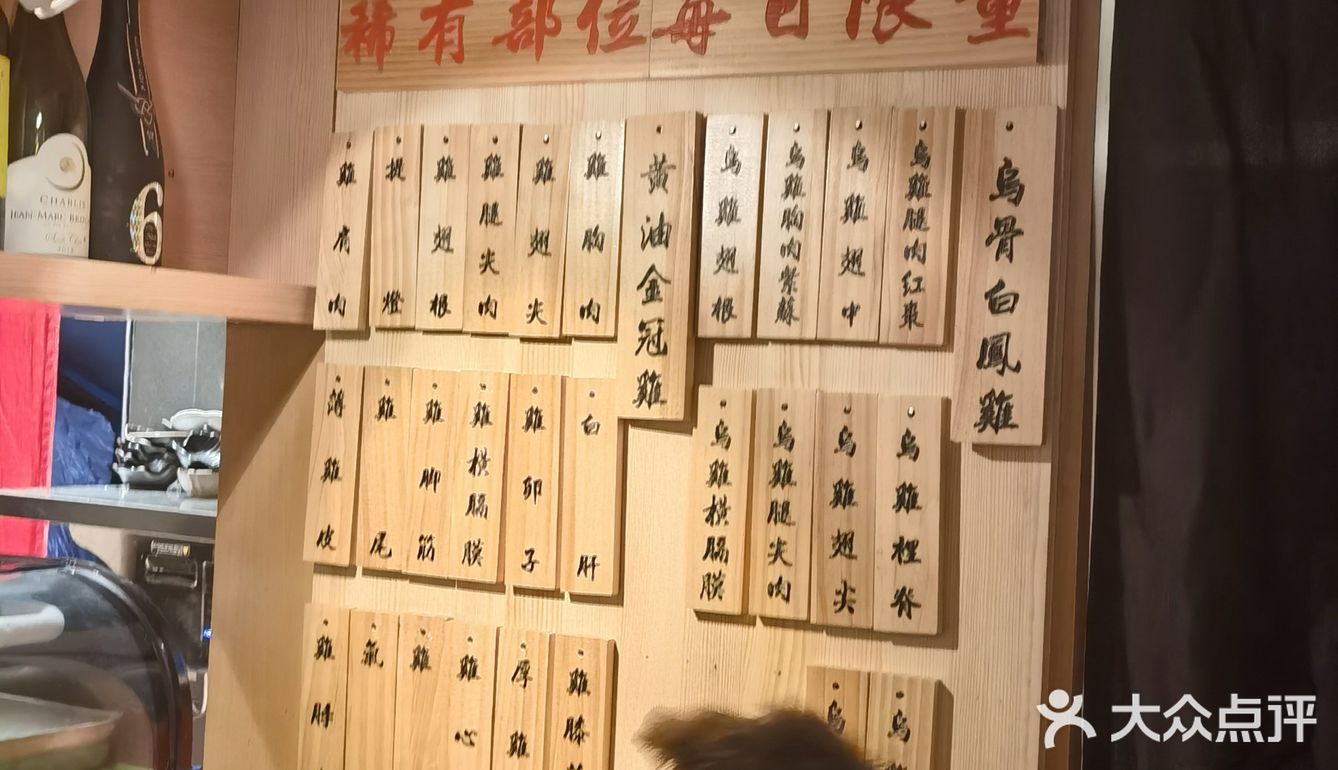 稀有部位每日限量
烏骨白鳳雞
烏雞腿肉紅棗
烏雞翅中
烏雞胸肉紫蘇
烏雞翅根
烏雞裡脊
烏雞翅尖
烏雞腿尖肉
烏雞橫膈膜
黃油金冠雞
雞胸肉
雞翅尖
雞腿尖肉
雞翅根
提燈
雞肩肉
白肝
雞卵子
雞橫膈膜
雞腳筋
雞尾
薄雞皮
雞膝
厚雞
雞心
雞
氣
雞脖
烏
烏雞
CHABLIS
JEAN-MARC BRO
6
大众点评